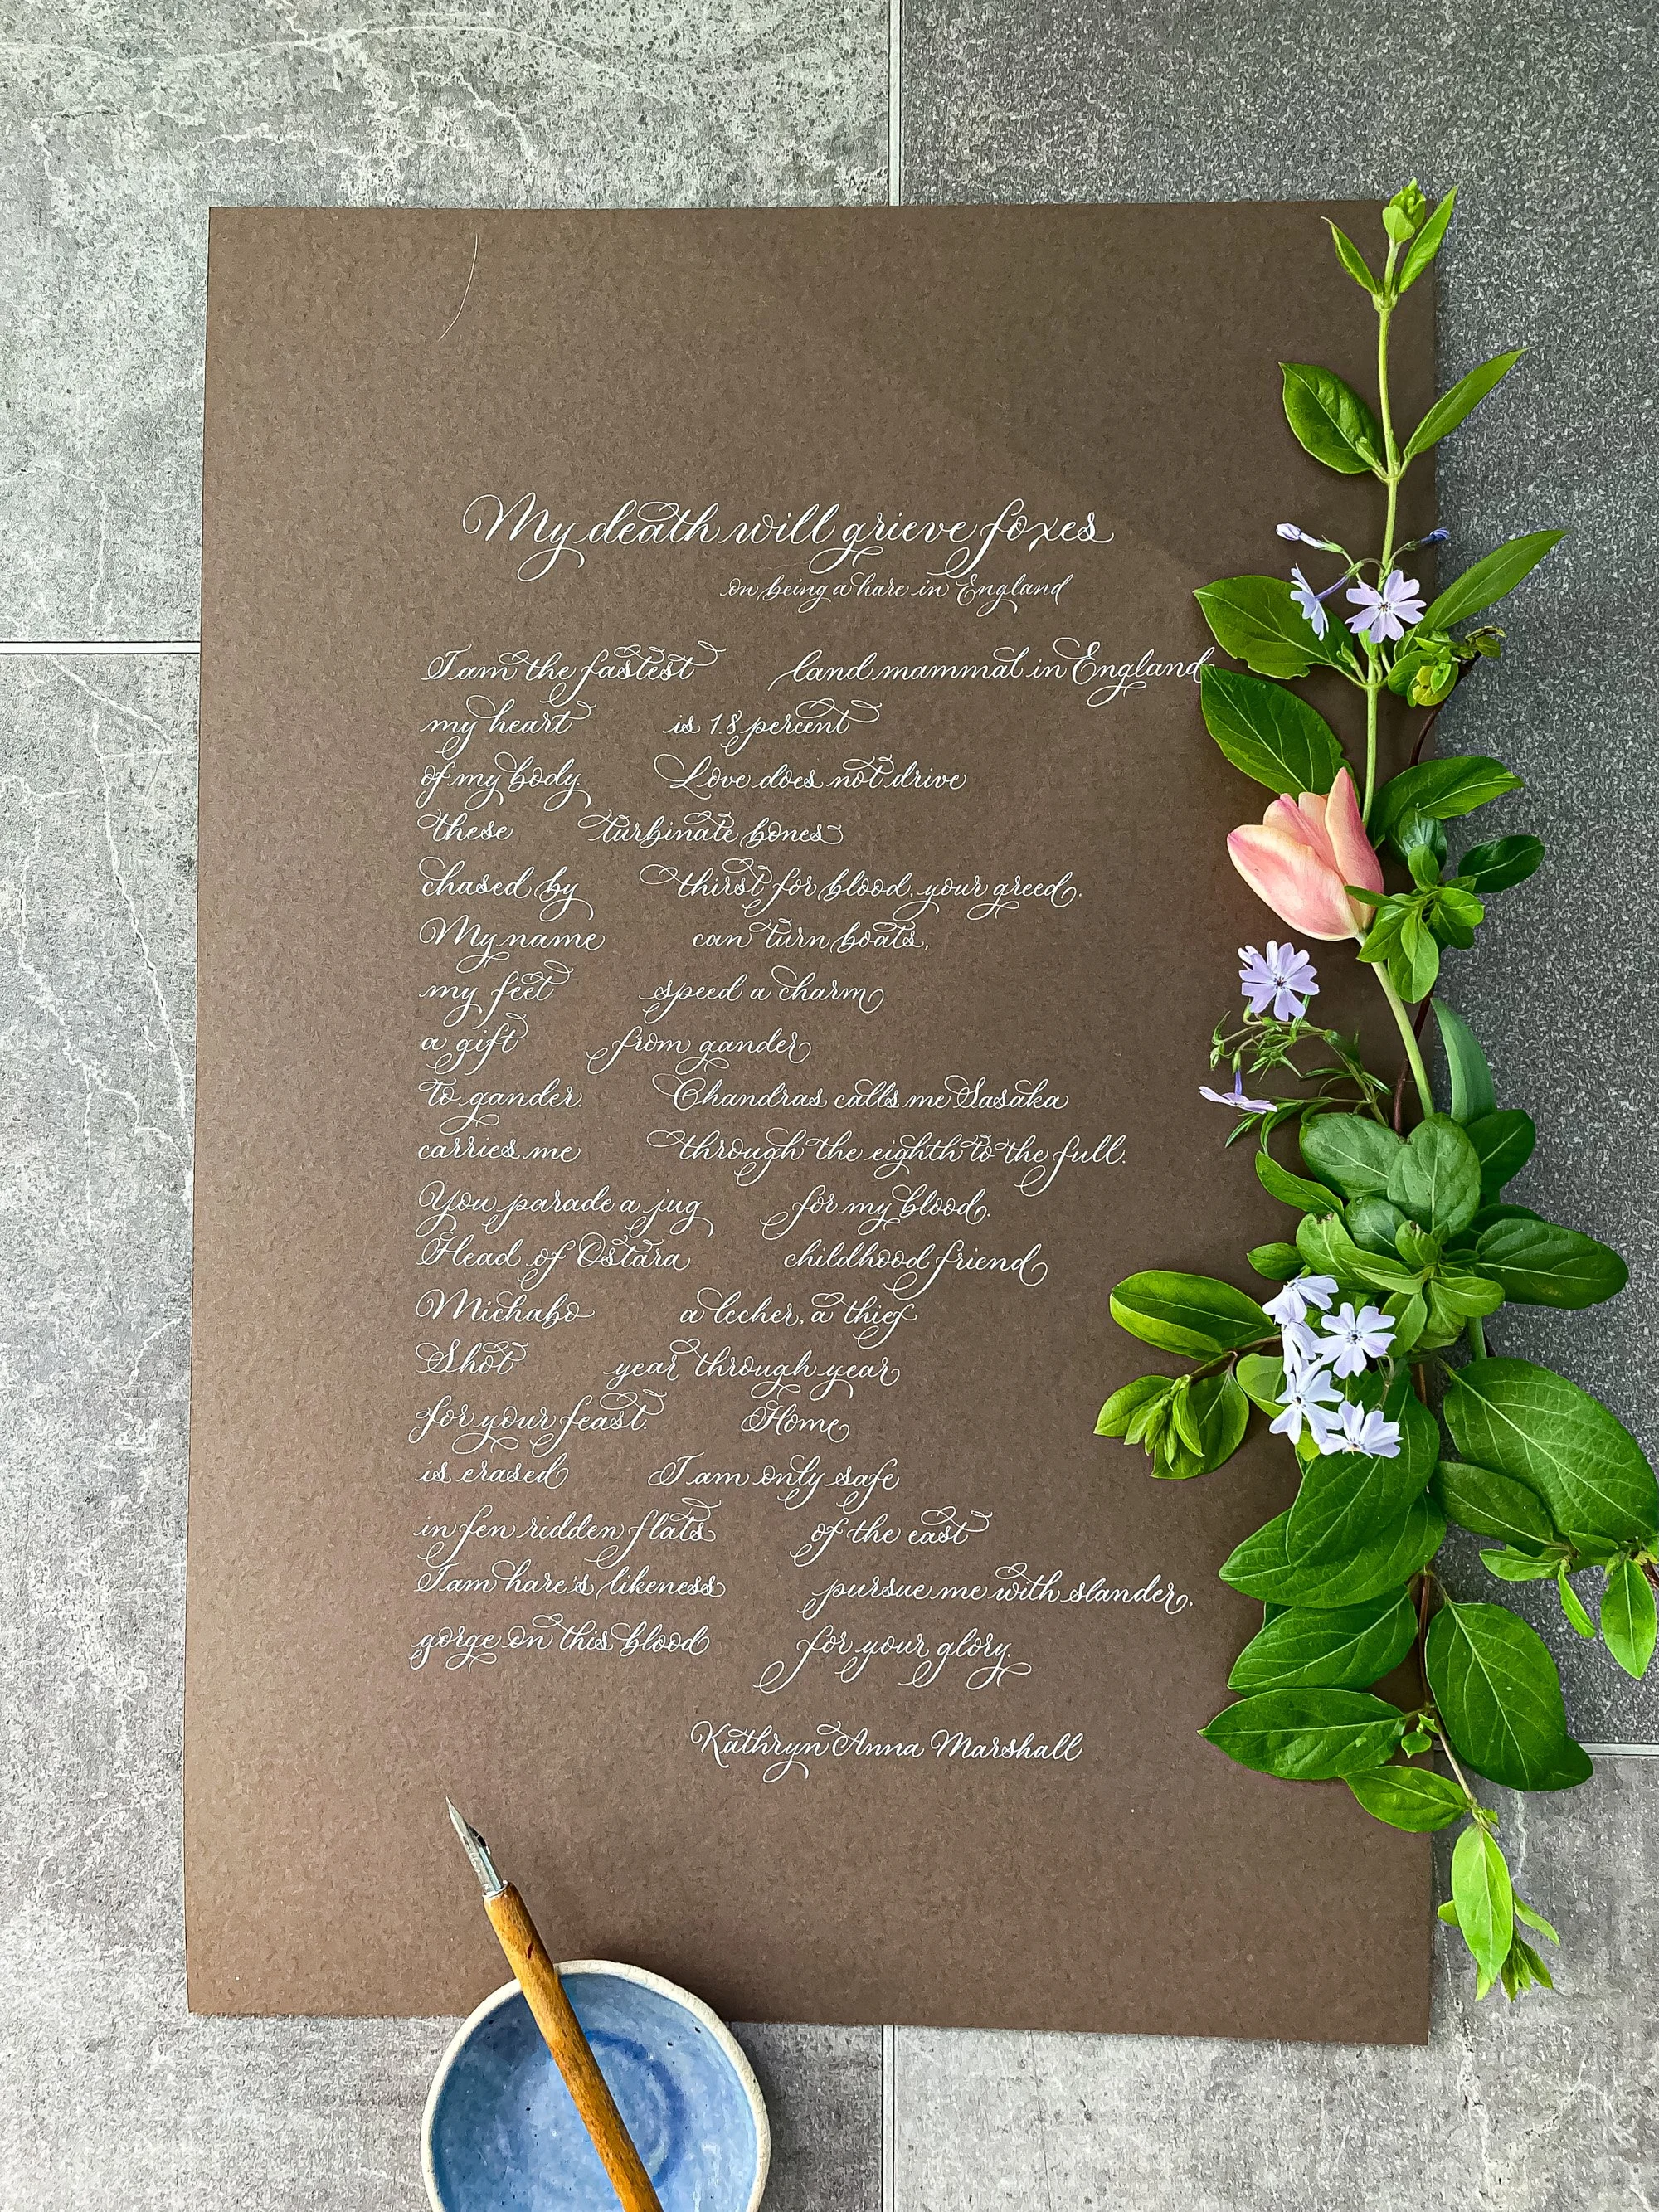 My death will grieve foxes
on being a hare in England
I am the fastest land mammal in England
my heart is 1.8 percent
of my body. Love does not drive
these turbinate bones
chased by thirst for blood, your greed.
My name can turn boats,
my feet speed a charm
a gift from gander
to gander. Chandras calls me Sasaka
carries me through the eighth to the full.
You parade a jug for my blood.
Head of Ostara childhood friend
Michabo a lecher, a thief
Shot year through year
for your feast. Home
is erased I am only safe
in fen ridden flats of the east
I am hare's likeness pursue me with slander,
gorge on this blood for your glory.
Kathryn Anna Marshall